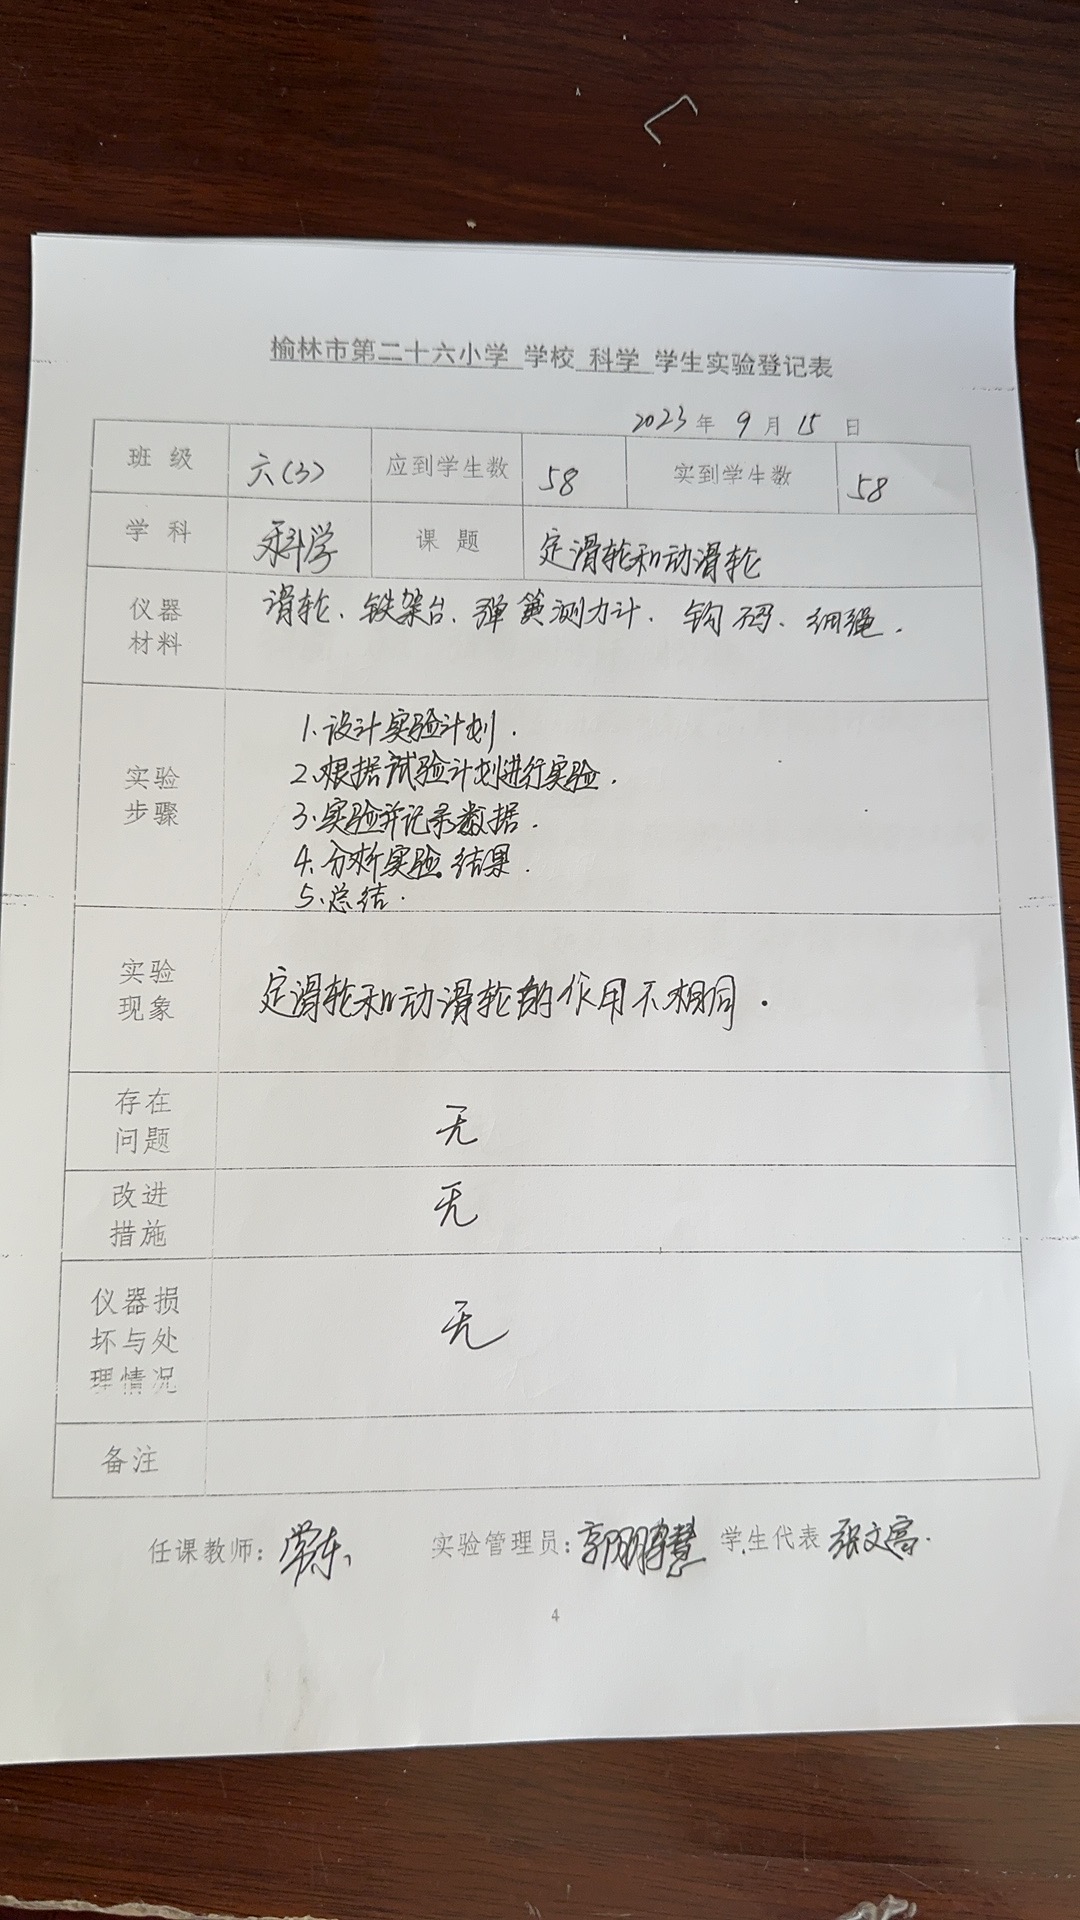 榆林市第二十六小学 学校 科学 学生实验登记表
2023 年 9 月 15 日
班 级 六(3) 应到学生数 58 实到学生数 58
学 科 科学 课 题 定滑轮和动滑轮
仪器
材料
滑轮、铁架台、弹簧测力计、钩码、细绳.
实验
步骤
1.设计实验计划.
2.根据试验计划进行实验.
3.实验并记录数据.
4.分析实验结果.
5.总结.
实验
现象
定滑轮和动滑轮的作用不相同.
存在
问题
无
改进
措施
无
仪器损
坏与处
理情况
无
备注
任课教师: 实验管理员: 学生代表 张文高.
4